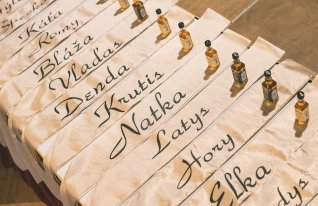 Káta
Romy
Bláža
Vladas
Denda
Krutis
Natka
Latys
Hory
Elka